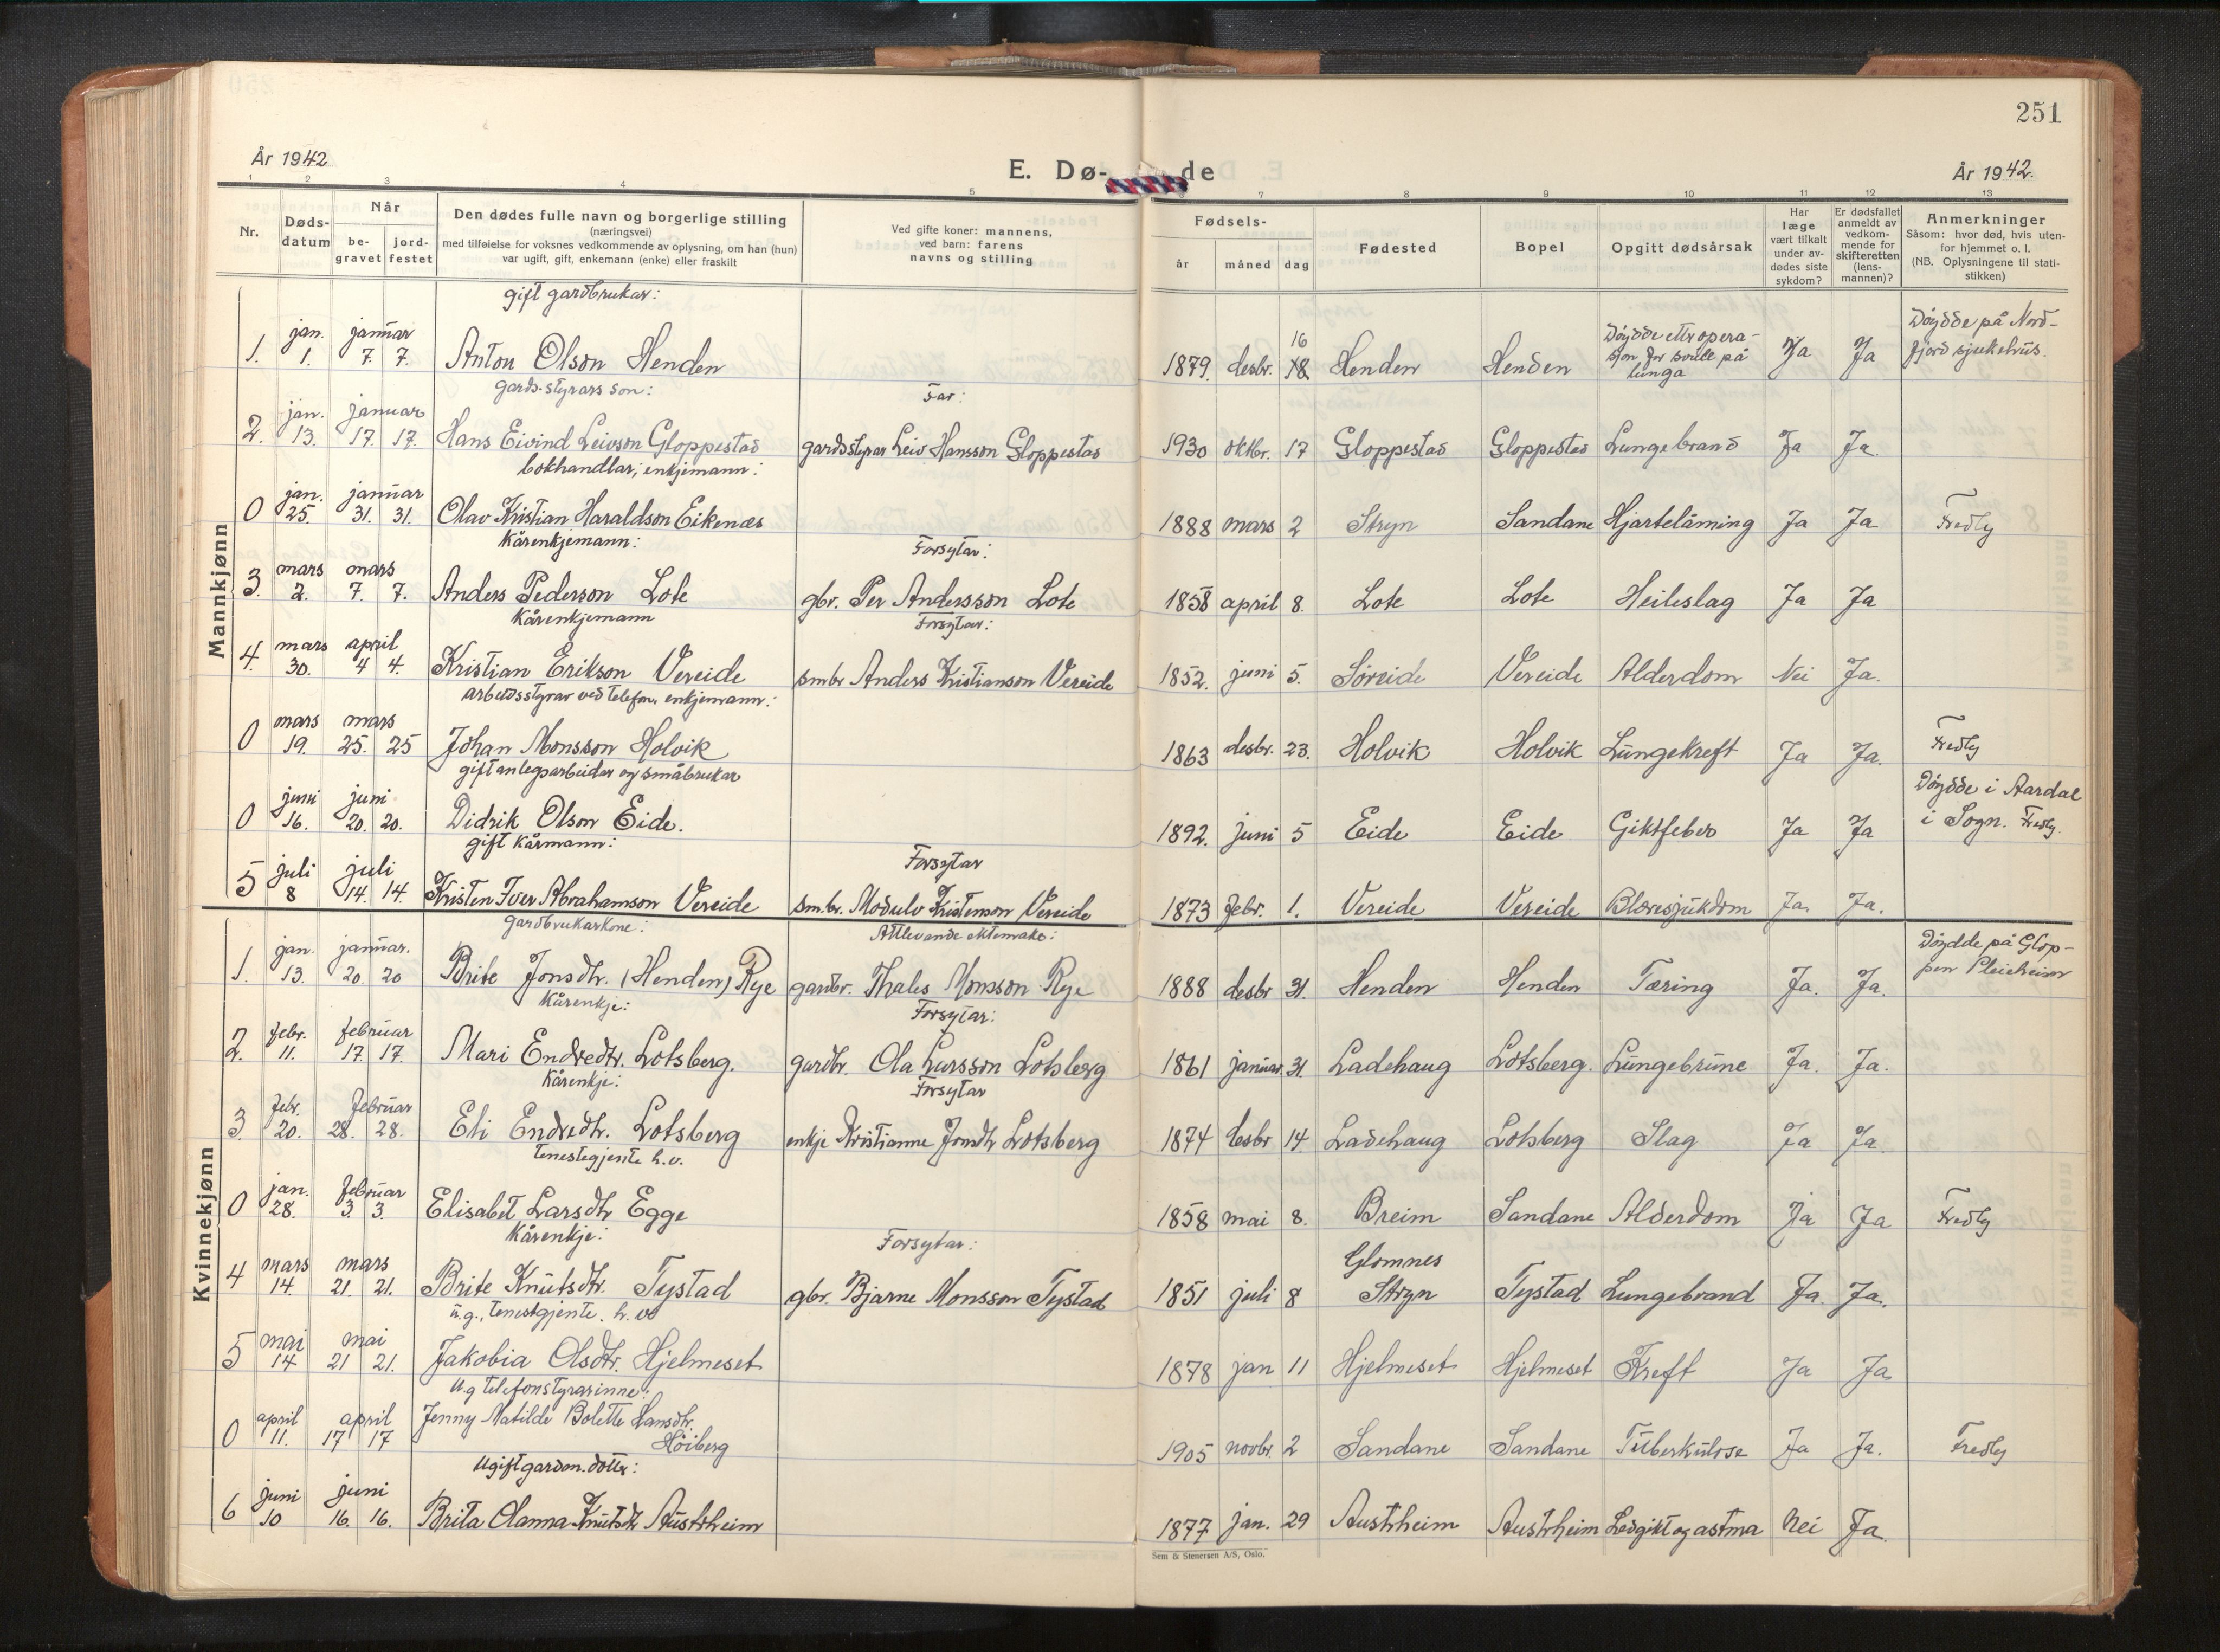 251
År 1942
E. Dø- de
År 1942.
1 2 3 4 5 7 8 9 10 11 12 13
Nr.
Døds-
datum
Når
be-
gravet
jord-
festet
Den dødes fulle navn og borgerlige stilling
(næringsvei)
med tilføielse for voksnes vedkommende av oplysning, om han (hun)
var ugift, gift, enkemann (enke) eller fraskilt
Ved gifte koner: mannens,
ved barn: farens
navns og stilling
Fødsels-
år måned dag
Fødested
Bopel
Opgitt dødsårsak
Har
læge
vært tilkalt
under av-
dødes siste
sykdom?
Er dødsfallet
anmeldt av
vedkom-
mende for
skifteretten
(lens-
mannen)?
Anmerkninger
Såsom: hvor død, hvis uten-
for hjemmet o. l.
(NB. Oplysningene til stati-
stikken)
Mannkjønn
gift gardbrukar:
jan. januar
1. 1. 7. 7. Anton Olson Henden 1879. desbr. 18 16 Henden Henden Døydde ettr opera-
sjon for svull på
lunga Ja Ja Døydde på Nord-
fjord sjukehus.
gards-styrars son: Far:
jan. januar
2. 13. 17. 17. Hans Eivind Leivson Gloppestad gardsstyrar Leiv Hansson Gloppestad 1930 oktbr. 17 Gloppestad Gloppestad Lungebrand Ja Ja.
bokhandlar; enkjemann:
jan. januar
0 25. 31. 31. Olav Kristian Haraldson Eikenæs 1888 mars 2 Stryn Sandane Hjartelåming Ja Ja Fredly
Kårenkjemann: Forsytar:
mars mars
3. 2. 7. 7. Anders Pederson Lote gbr. Per Andersson Lote 1858 april 8. Lote Lote Heileslag Ja Ja
Kårenkjemann Forsytar:
mars april
4. 30. 4 4. Kristian Erikson Vereide smbr Anders Kristianson Vereide 1852. juni 5. Søreide Vereide Alderdom Nei Ja.
arbeidsstyrar ved telefon, enkjemann:
mars mars
0 19. 25. 25 Johan Monsson Holvik 1863 desbr. 23. Holvik Holvik Lungekreft Ja Ja. Fredly
gift anlegsarbeidar og småbrukar
juni juni
0 16. 20. 20. Didrik Olson Eide. 1892. juni 5 Eide Eide Giktfeber Ja Ja Døydde i Aardal
i Sogn. Fredly.
gift kårmann: Forsytar
juli juli
5 8 14. 14. Kristen Iver Abrahamson Vereide sm.br. Modulv Kristenson Vereide 1873 febr. 1. Vereide Vereide Blæresjukdom Ja. Ja.
Kvinnekjønn
gardbrukarkone: Attlevande ektemake:
jan. januar.
1. 13. 20. 20 Brite Jonsdtr. (Henden) Rye gardbr. Thales Monsson Rye 1888 desbr 31. Henden Henden Tæring Ja. Ja. Døydde på Glop-
pen Pleieheim
Kårenkje: Forsytar:
febr. februar
2. 11. 17. 17. Mari Endredtr. Lotsberg. gardbr. Ola Larsson Lotsberg 1861 januar. 31. Ladehaug Lotsberg. Lungebrune Ja. Ja.
Kårenkje: Forsytar
febr. februar
3. 20. 28. 28. Eli Endredtr. Lotsberg enkje Kristianne Jonsdtr Lotsberg 1874 desbr 14. Ladehaug Lotsberg Slag Ja Ja.
tenestegjente h.v.
jan. februar
0 28. 3. 3. Elisabet Larsdtr Egge 1858 mai 8. Breim Sandane Alderdom Ja Ja Fredly
Kårenkje: Forsytar:
mars mars
4 14. 21. 21. Brite Knutsdtr. Tystad gbr. Bjarne Monsson Tystad 1851 juli 8 Glomnes
Stryn Tystad Lungebrand Ja. Ja.
u.g., tenestgjente. h.v.
mai mai
5 14 21 21. Jakobia Olsdtr. Hjelmeset 1878 jan 11 Hjelmeset Hjelmeset Kreft Ja Ja.
u.g telefonstyrarinne:
april april
0 11. 17 17 Jenny Matilde Bolette Hansdtr.
Høiberg 1905 novbr. 2 Sandane Sandane Tuberkulose Ja Ja. Fredly
Ugift gardm. dotter:
juni juni
6 10 16. 16. Brita Olanna Knutsdtr Austrheim 1877 jan. 29 Austrheim Austrheim Ledgikt og astma Nei Ja.
Sem & Stenersen A/S, Oslo.